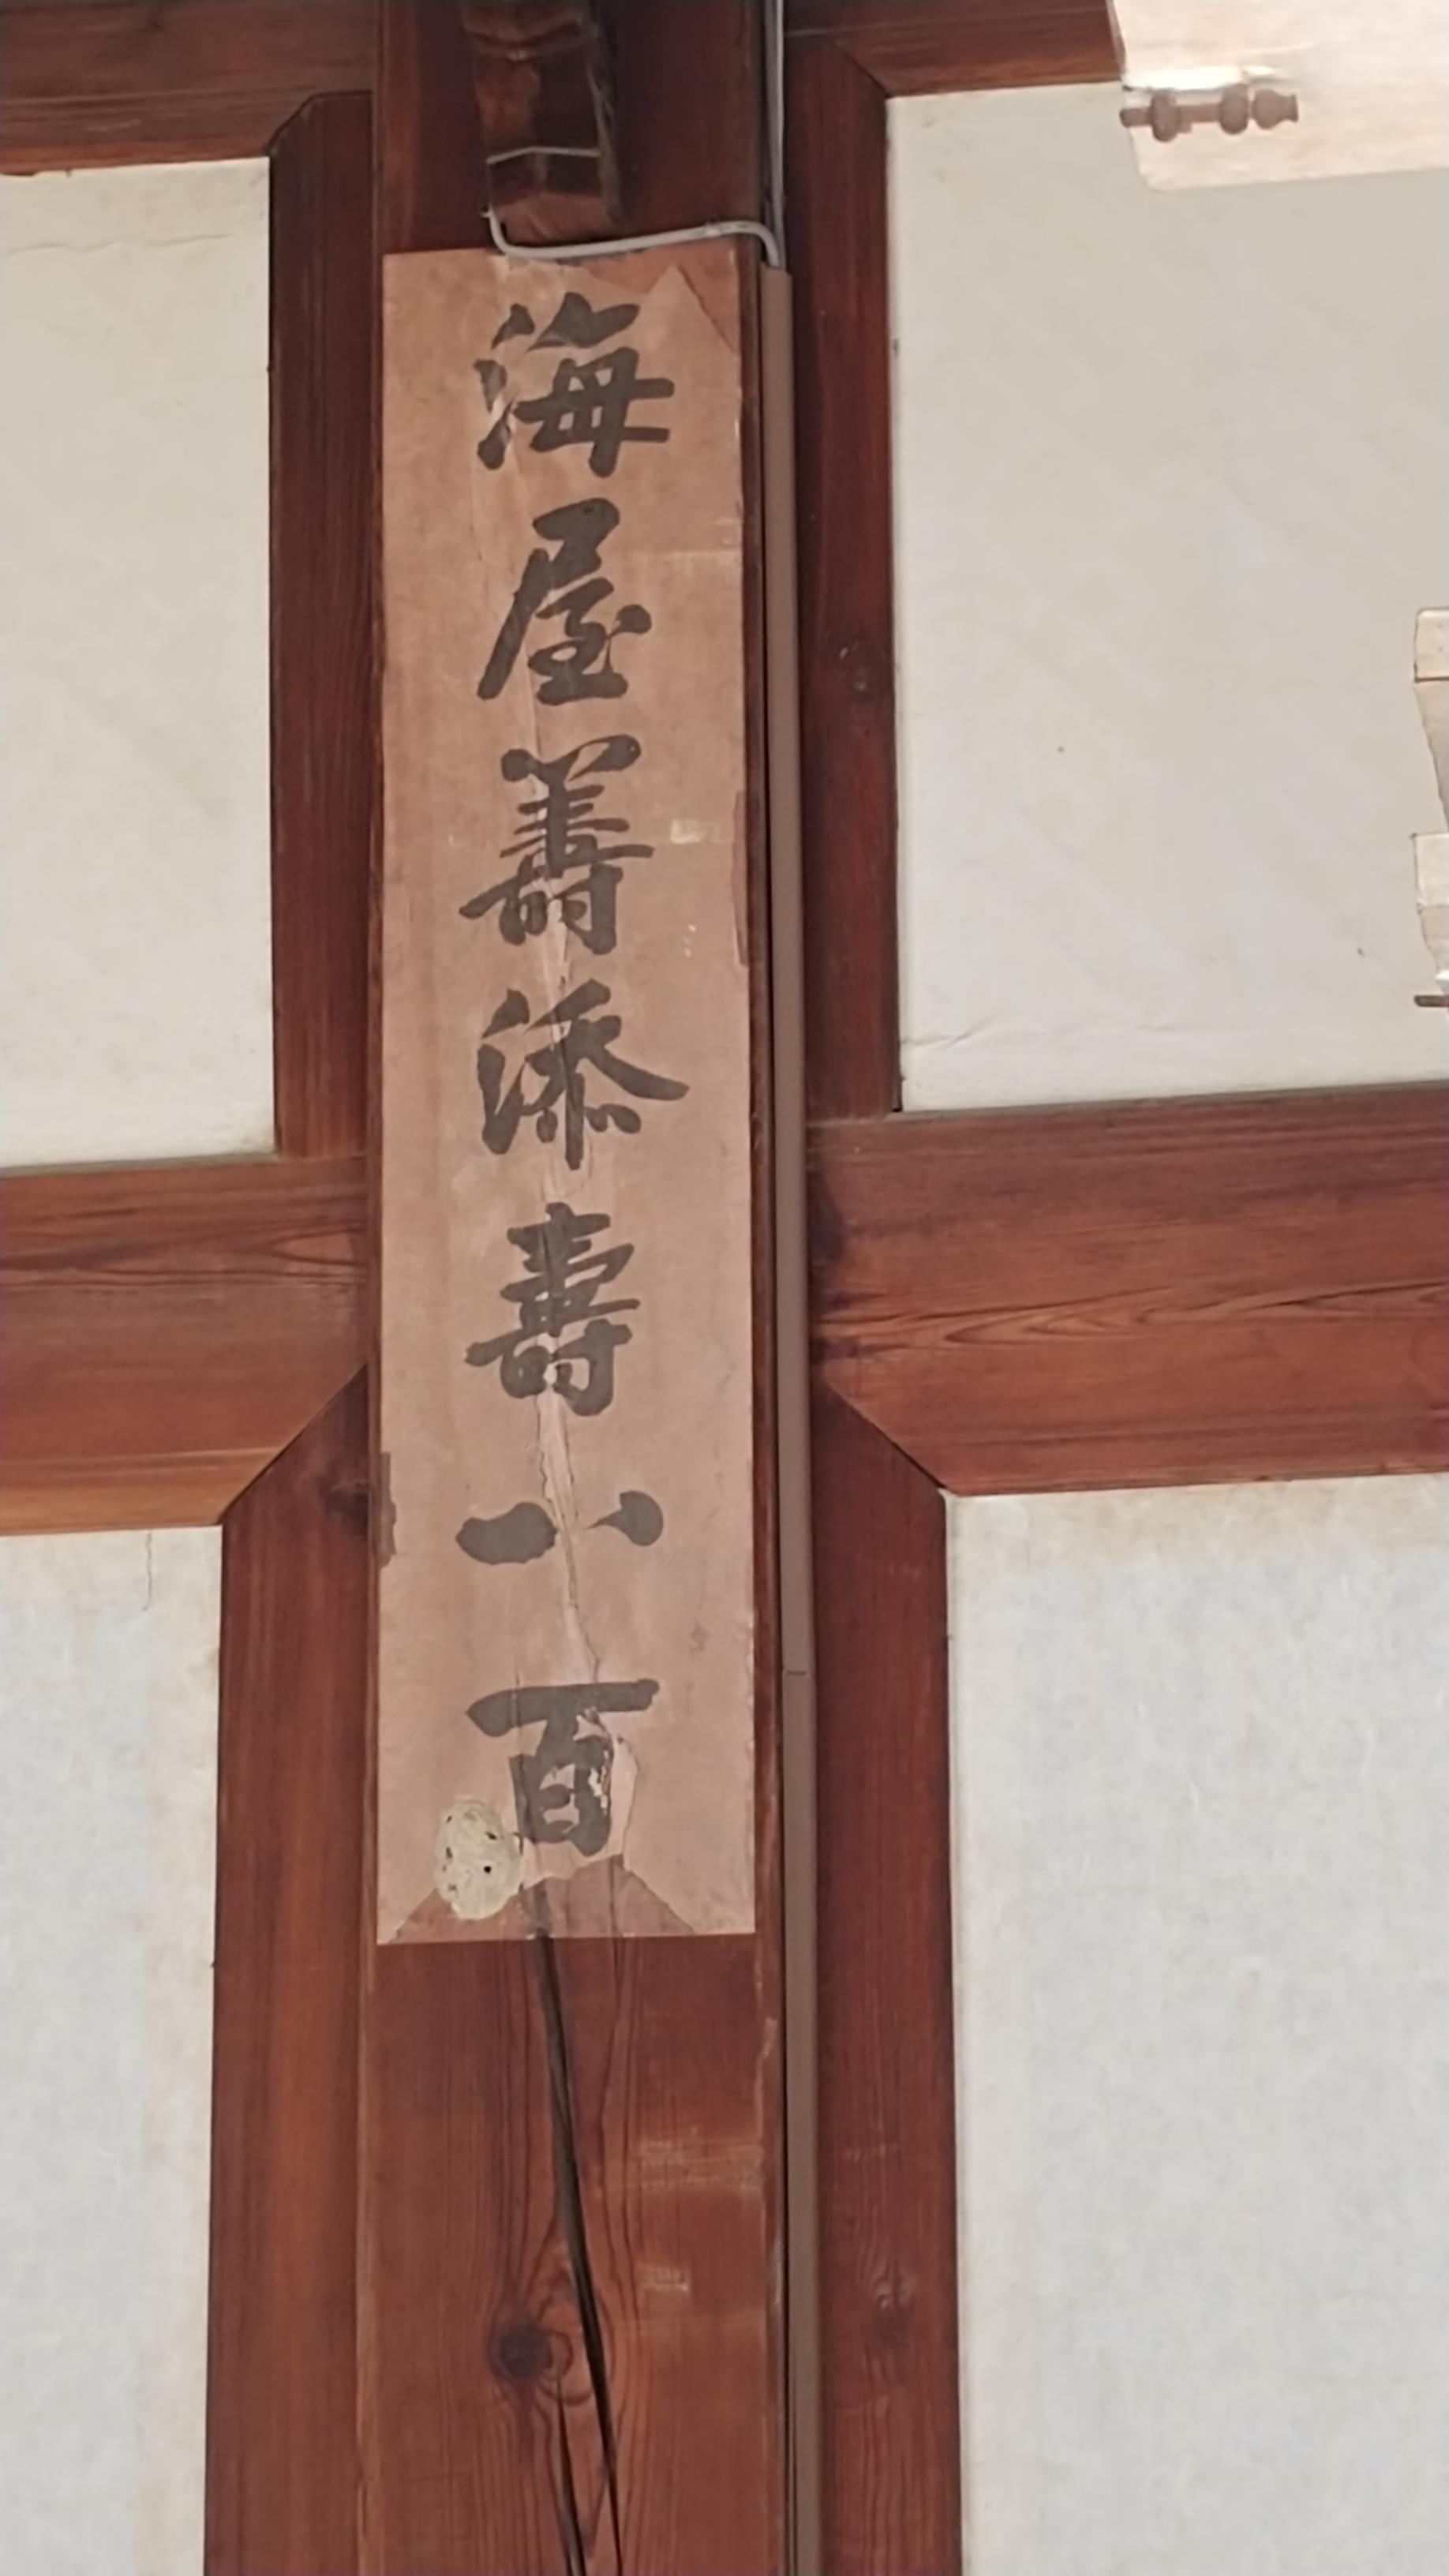 海屋籌添壽八百